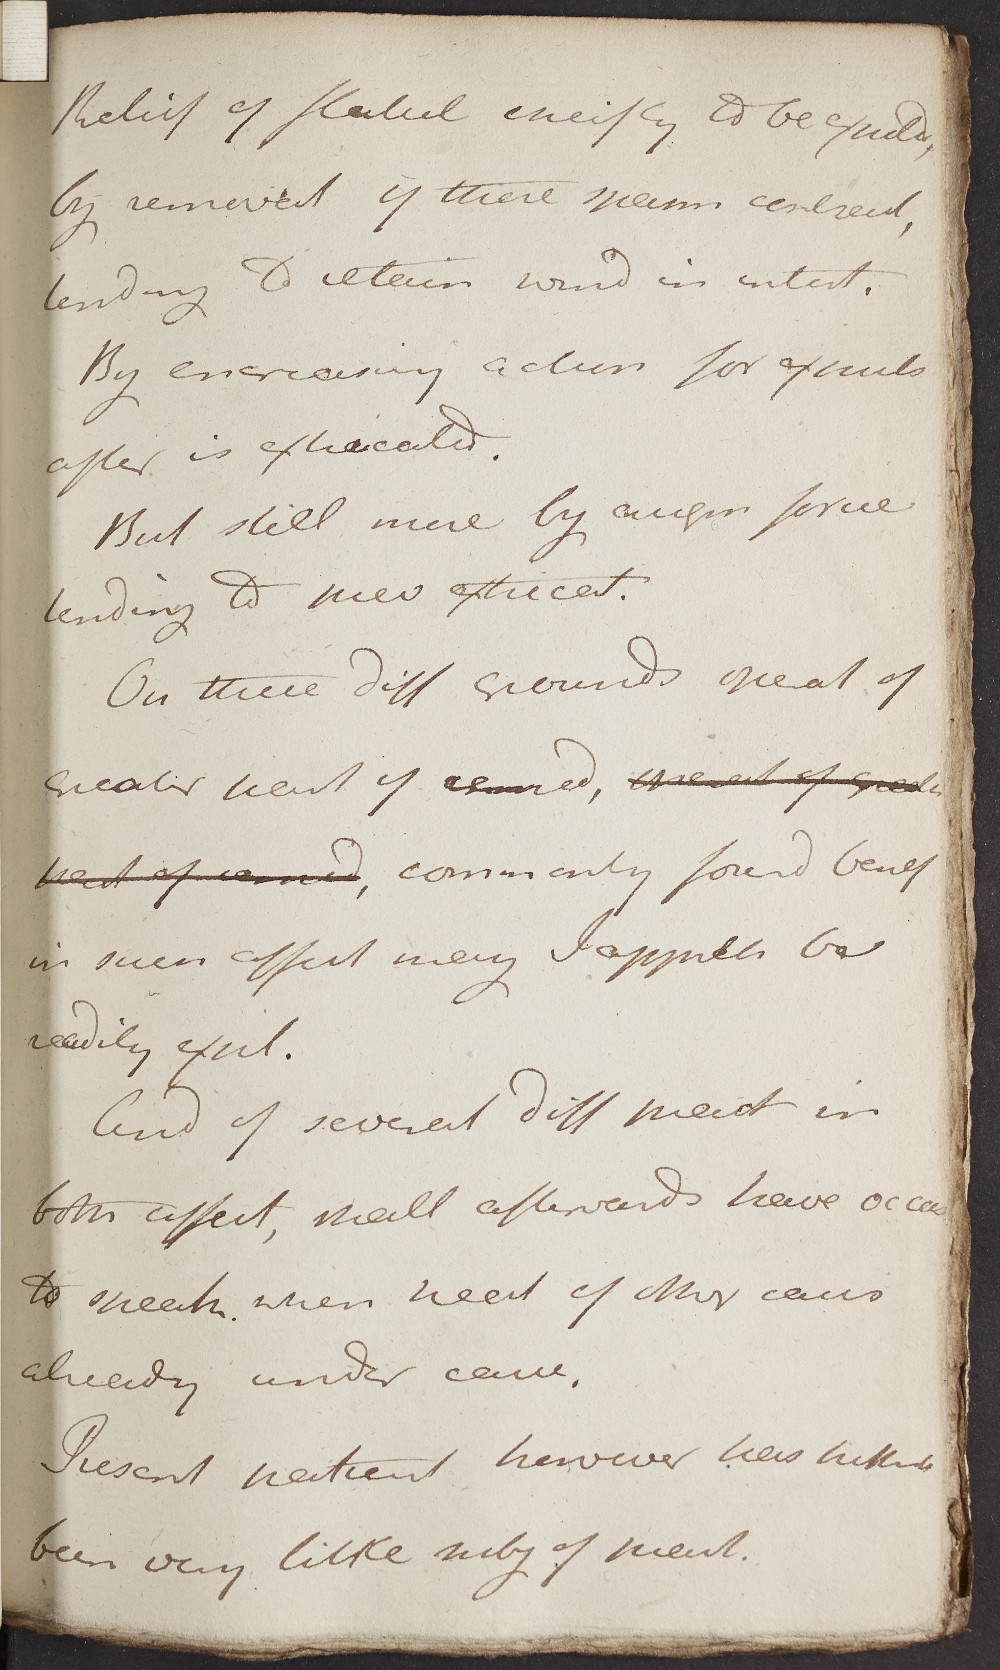 Relief of flatul chiefly to be expected,
by removal of those spasm contract,
tending to retain wind in intest.
By encreasing action for expuls
after is extricated.
But still more by augm force
tending to prev extricat.
On these diff grounds operat of
greater part of remed, operat of greater
part of remed, commonly found benef
in such affect may I appreh be
readily expl.
And of several diff pract in
both affect, shall afterwards have occas
to speak. when treat of other cases
already under care.
Present patient however has hitherto
been very little subj of pract.